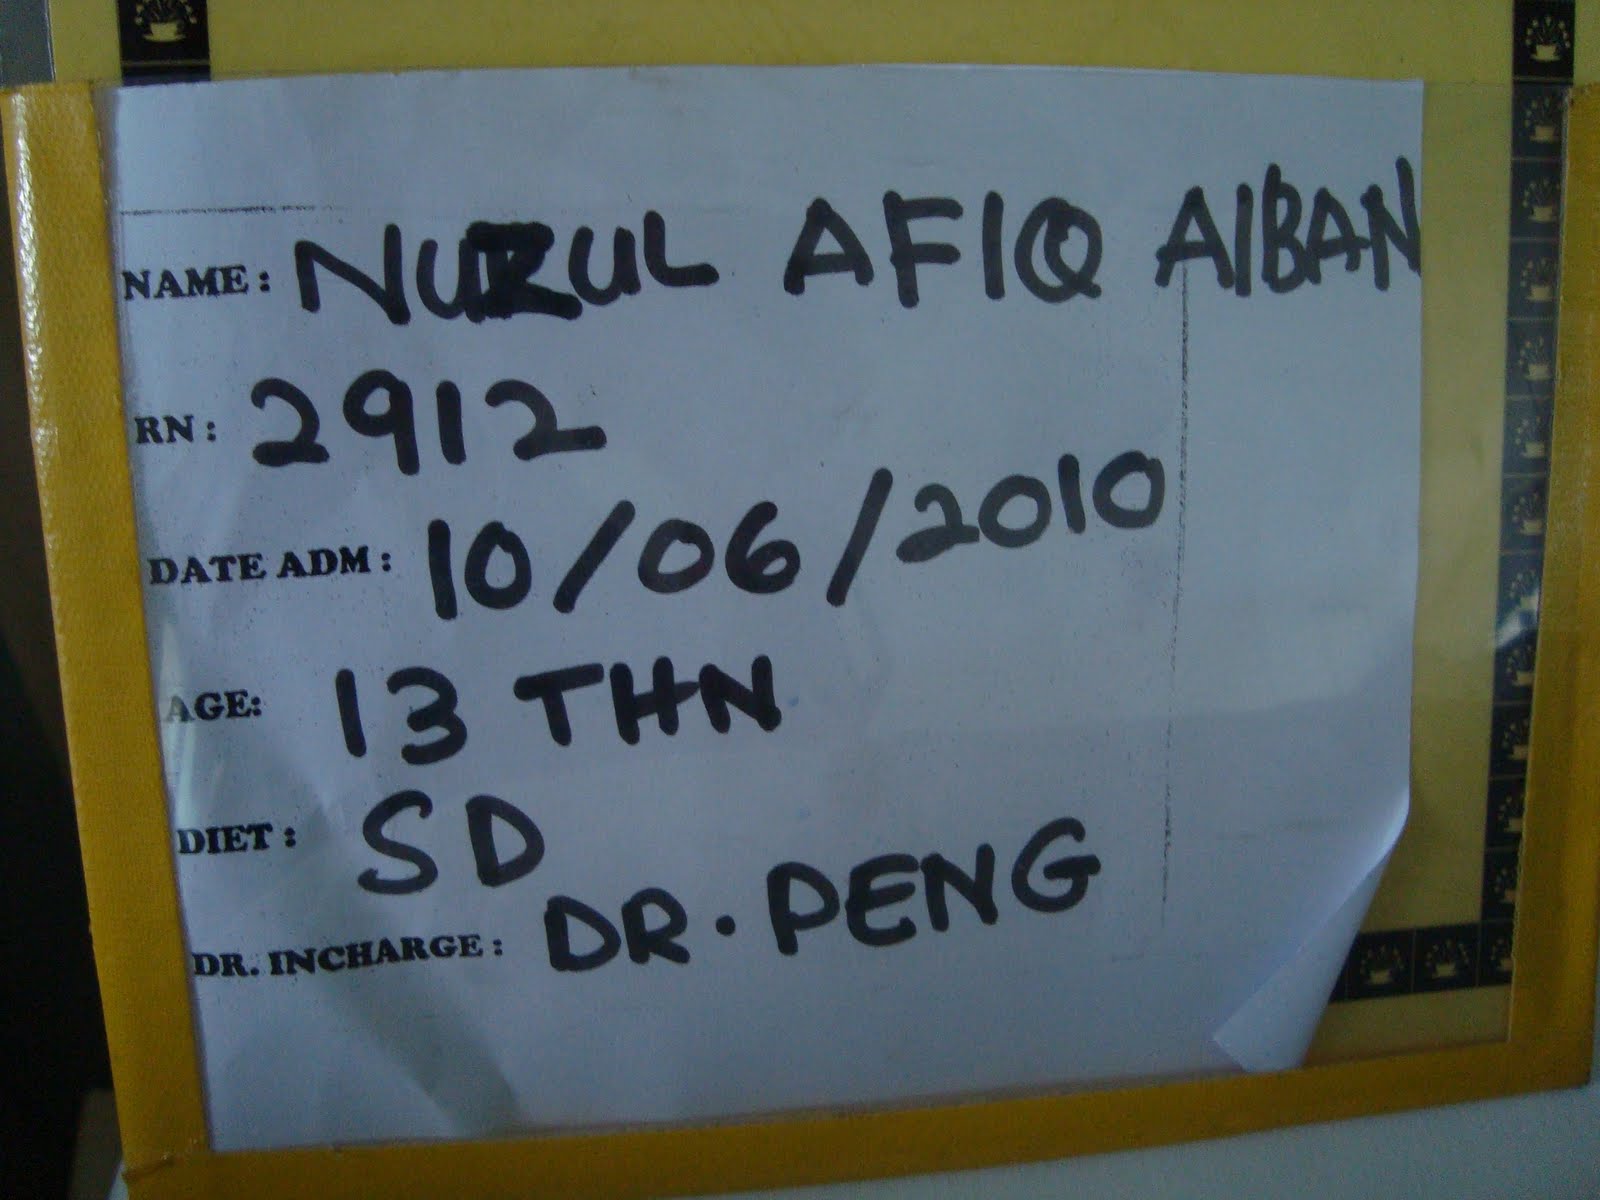 NAME: NURUL AFIQ AIBAN
RN: 2912
DATE ADM: 10/06/2010
AGE: 13 THN
DIET: SD
DR. INCHARGE: DR. PENG